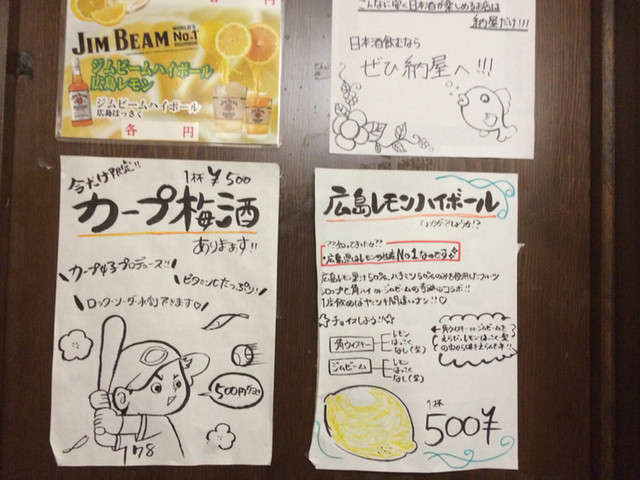 JIM BEAM
WORLD'S
No.1
BOURBON
ジムビームハイボール
広島レモン
ジムビームハイボール
広島はっさく
各 円
こんなに安く日本酒が楽しめるお店は
納屋だけ!!!
日本酒飲むなら
ぜひ納屋へ!!!
今だけ限定!!
1杯 ¥500
カープ梅酒
あります!!
カープ女子プロデュース!!
ビタミンCたっぷり!
ロック・ソーダ・水割できます♡
500円
178
広島レモンハイボール
いかがでしょうか!?
??知ってましたか??
広島県はレモンの生産No.1なのです
広島レモン果汁50%、ハチミツ50%のみを使用したフルーツ
シロップと角ハイorジムビームの奇跡のコラボ!!
1度飲めばヤミツキ間違いナシ!!
☆チョイスしよう!!☆
角ウイスキー
レモン
はっさく
なし(空)
ジムビーム
レモン
はっさく
なし(空)
角ウイスキーorジムビームを
えらび、レモン はっさく 空
の中からえらんでネ!!
1杯
500¥